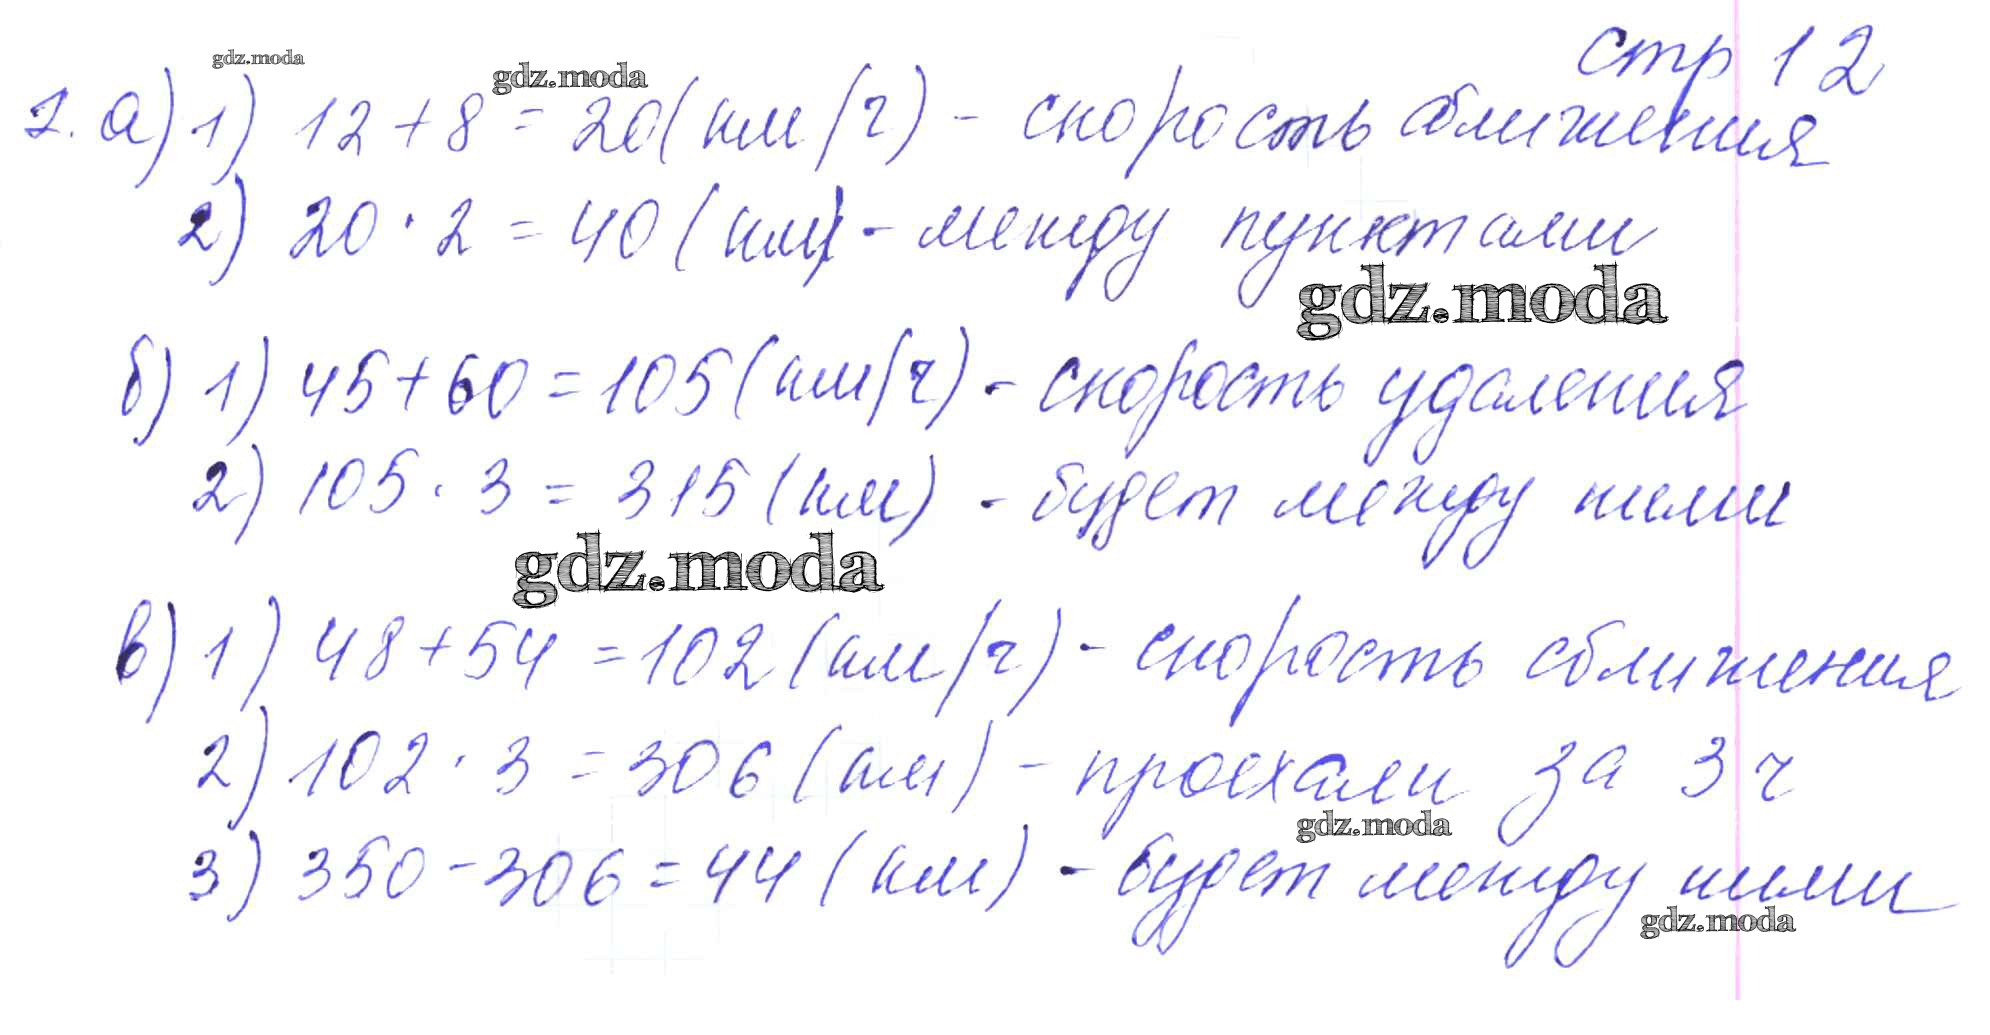 стр 12
gdz.moda
gdz.moda
1. а) 1) 12 + 8 = 20 (км/ч) - скорость сближения
2) 20 · 2 = 40 (км) - между пунктами
gdz.moda
б) 1) 45 + 60 = 105 (км/ч) - скорость удаления
2) 105 · 3 = 315 (км) - будет между ними
gdz.moda
в) 1) 48 + 54 = 102 (км/ч) - скорость сближения
2) 102 · 3 = 306 (км) - проехали за 3 ч
gdz.moda
3) 350 - 306 = 44 (км) - будет между ними
gdz.moda